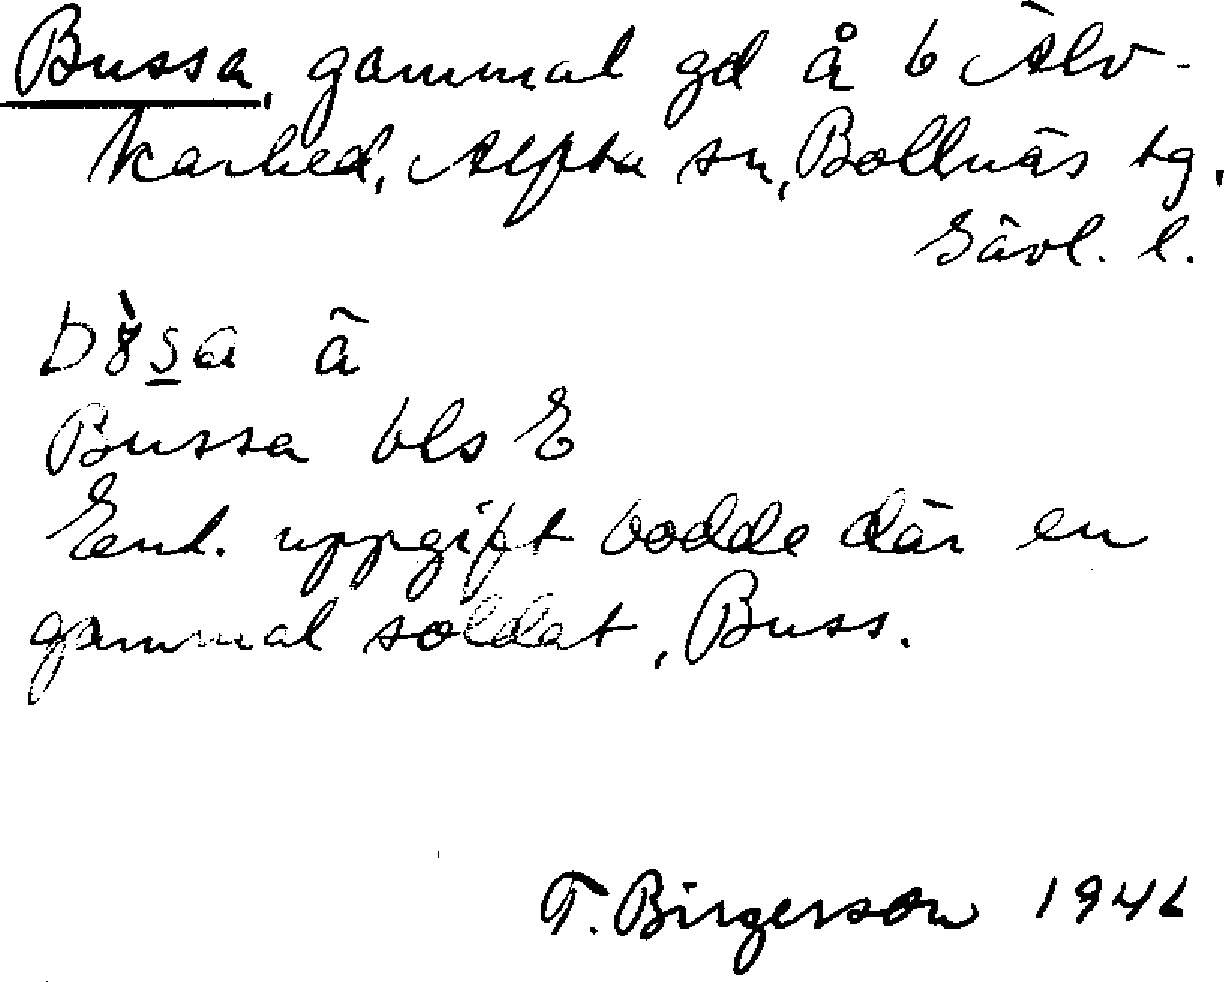 Bussa, gammal gd å 6 Älv-
karhed, Alfta sn, Bollnäs tg,
Gävl. l.
Bussa bls E
Enl. uppgift bodde där en
gammal soldat, Buss.
T. Birgerson 1946